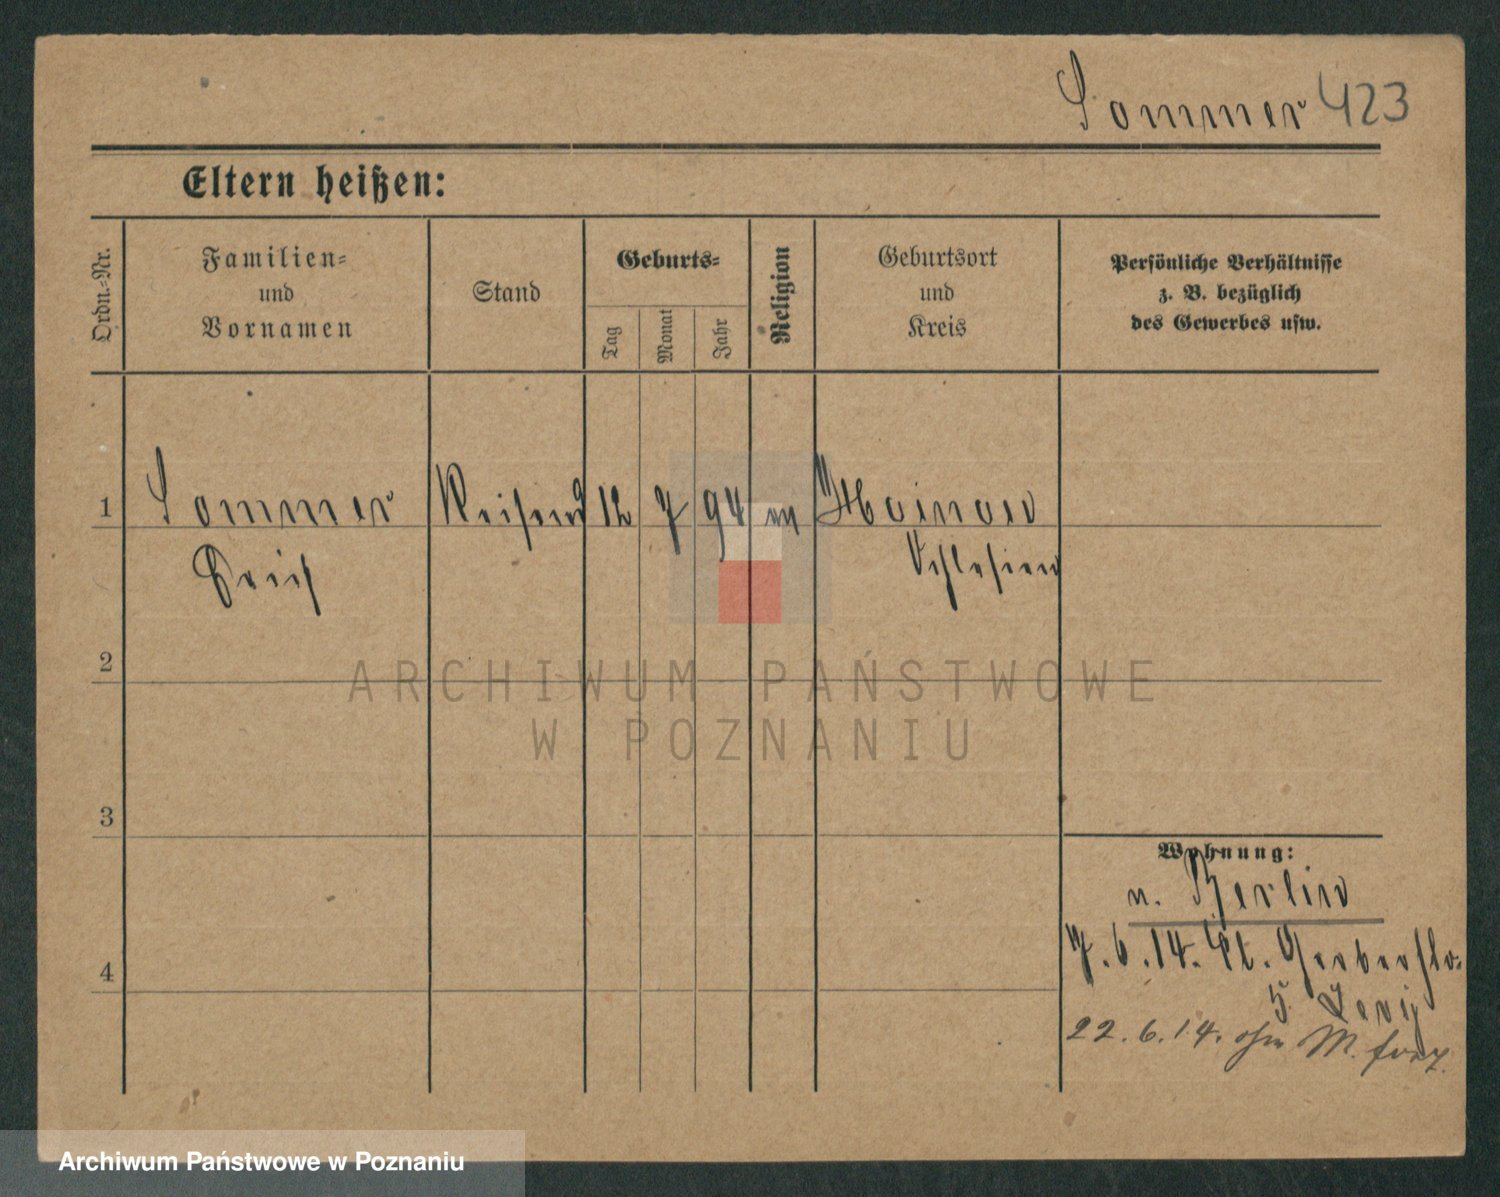 Sommer 423
Eltern heißen:
Ordn.-Nr.
Familien-
und
Vornamen
Stand
Geburts-
Tag
Monat
Jahr
Religion
Geburtsort
und
Kreis
Persönliche Verhältnisse
z. B. bezüglich
des Gewerbes usw.
1 Sommer Reisend 12 7 94 m Hainau
Erich Schlesien
ARCHIWUM PAŃSTWOWE
W POZNANIU
2
3
4
Wohnung:
n. Berlin
7.6.14. Gerberstr.
5.
22.6.14. ohn M.
Archiwum Państwowe w Poznaniu